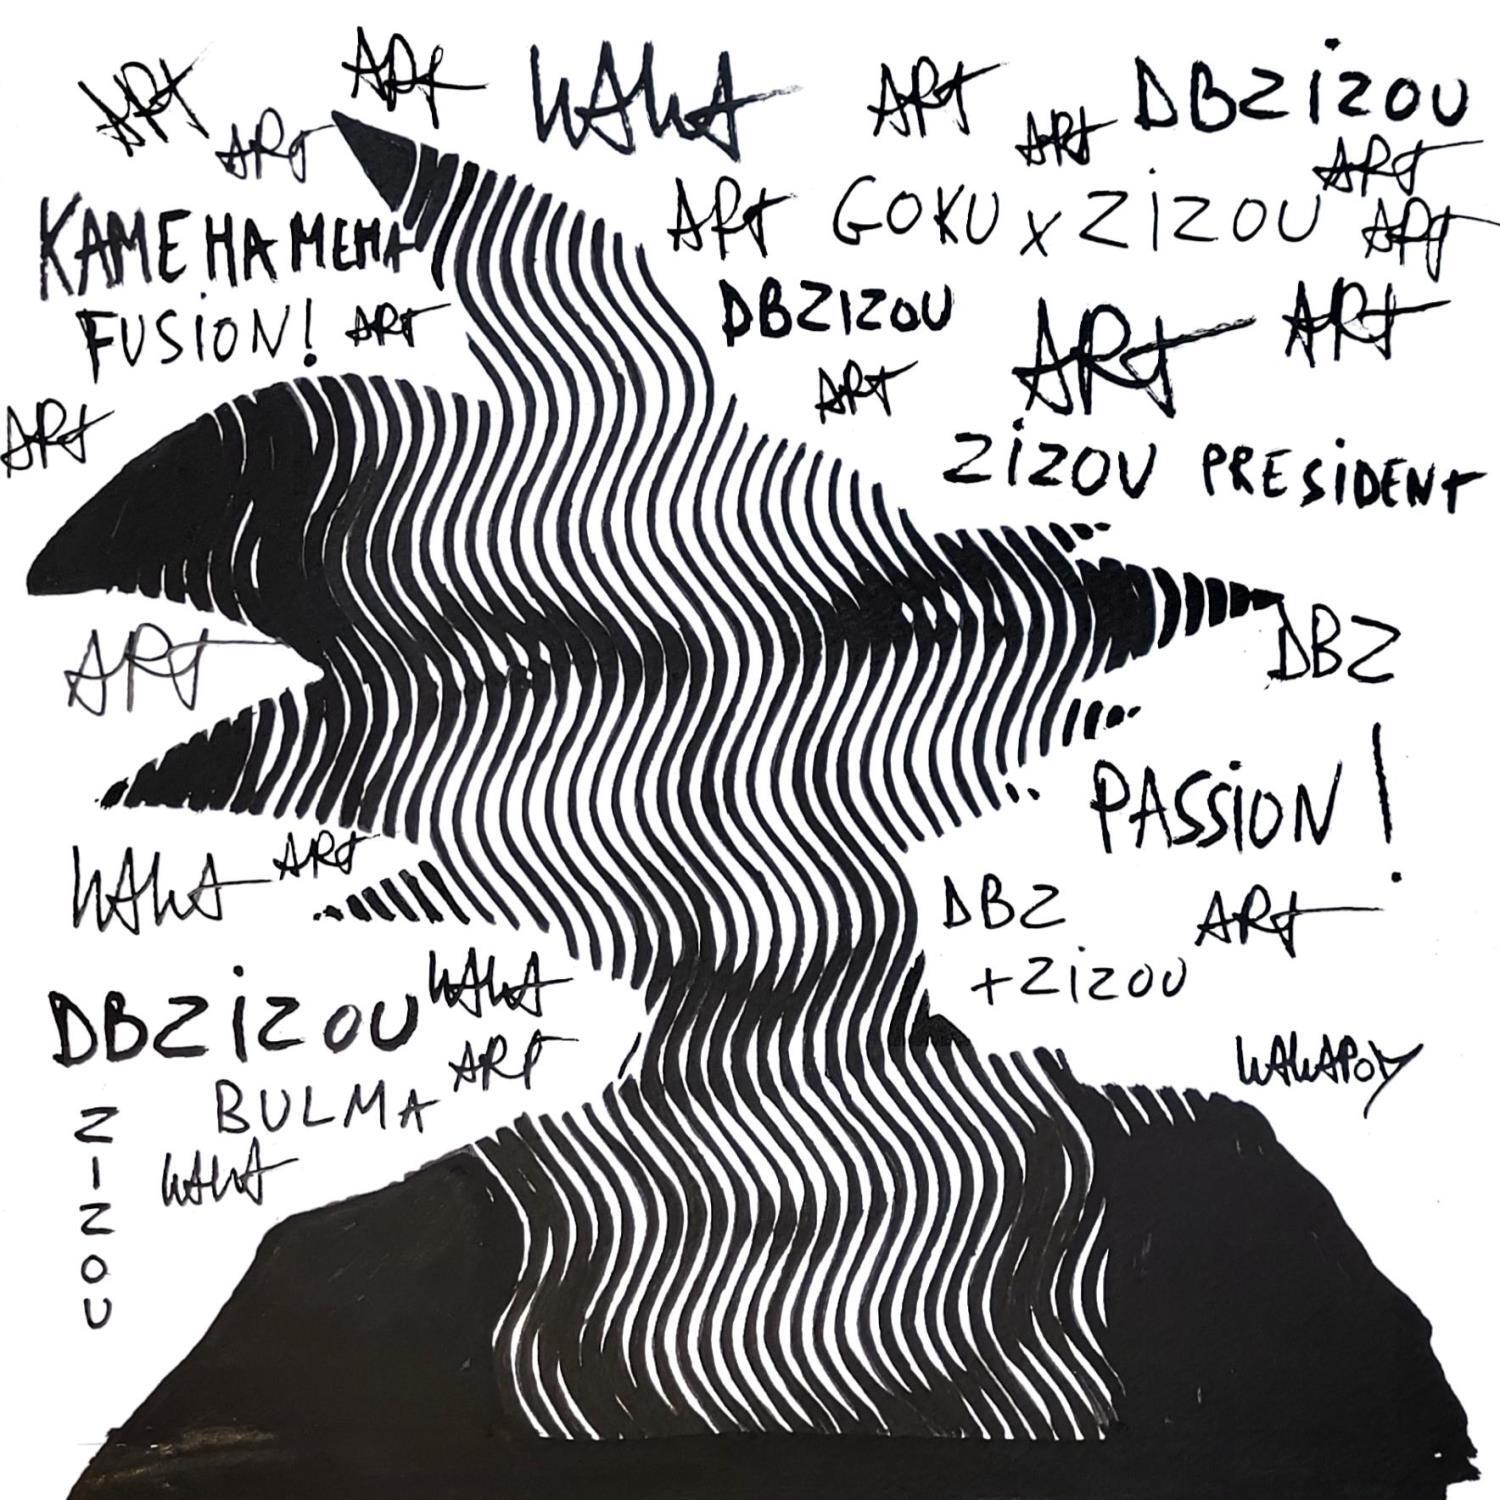 ART
ART
WAWA
ART
DBZIZOU
ART
ART
ART
KAMEHAMEHA
ART
GOKU x ZIZOU
ART
FUSION!
ART
DBZIZOU
ART
ART
ART
ART
ZIZOU PRESIDENT
ART
DBZ
PASSION!
WAWA
ART
DBZ
ART
+ZIZOU
WAWA
DBZIZOU
ART
WAWAPOY
BULMA
ZIZOU
WAWA